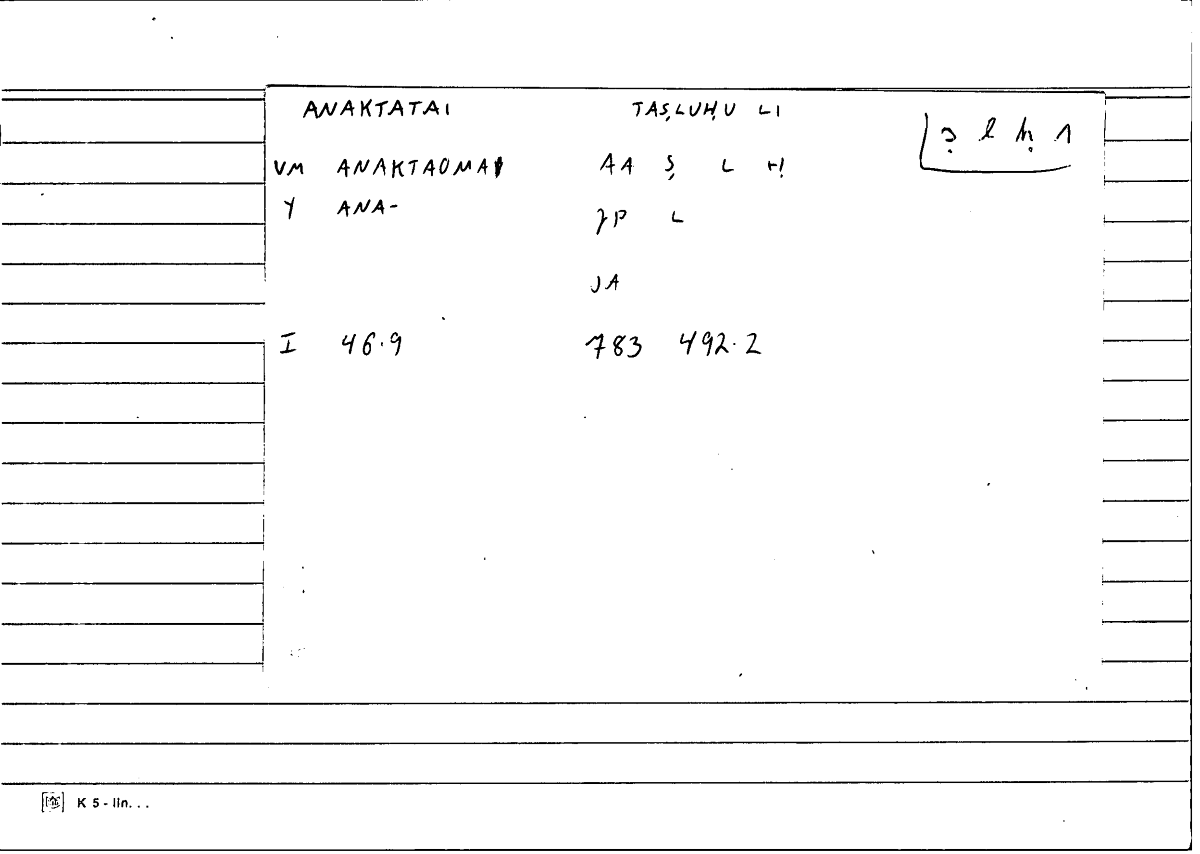 ANAKTATAI TAṢLUḤU LI
ṣ l ḥ 1
VM ANAKTAOMAI AA Ṣ L Ḥ
Y ANA- JP L
JA
I 46.9 783 492.2
K 5 - lin. . .